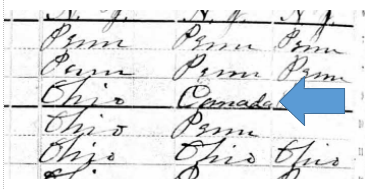 N. Y. N. Y. N. Y.
Penn Penn Penn
Penn Penn Penn
Ohio Canada
Ohio Penn
Ohio Ohio Ohio